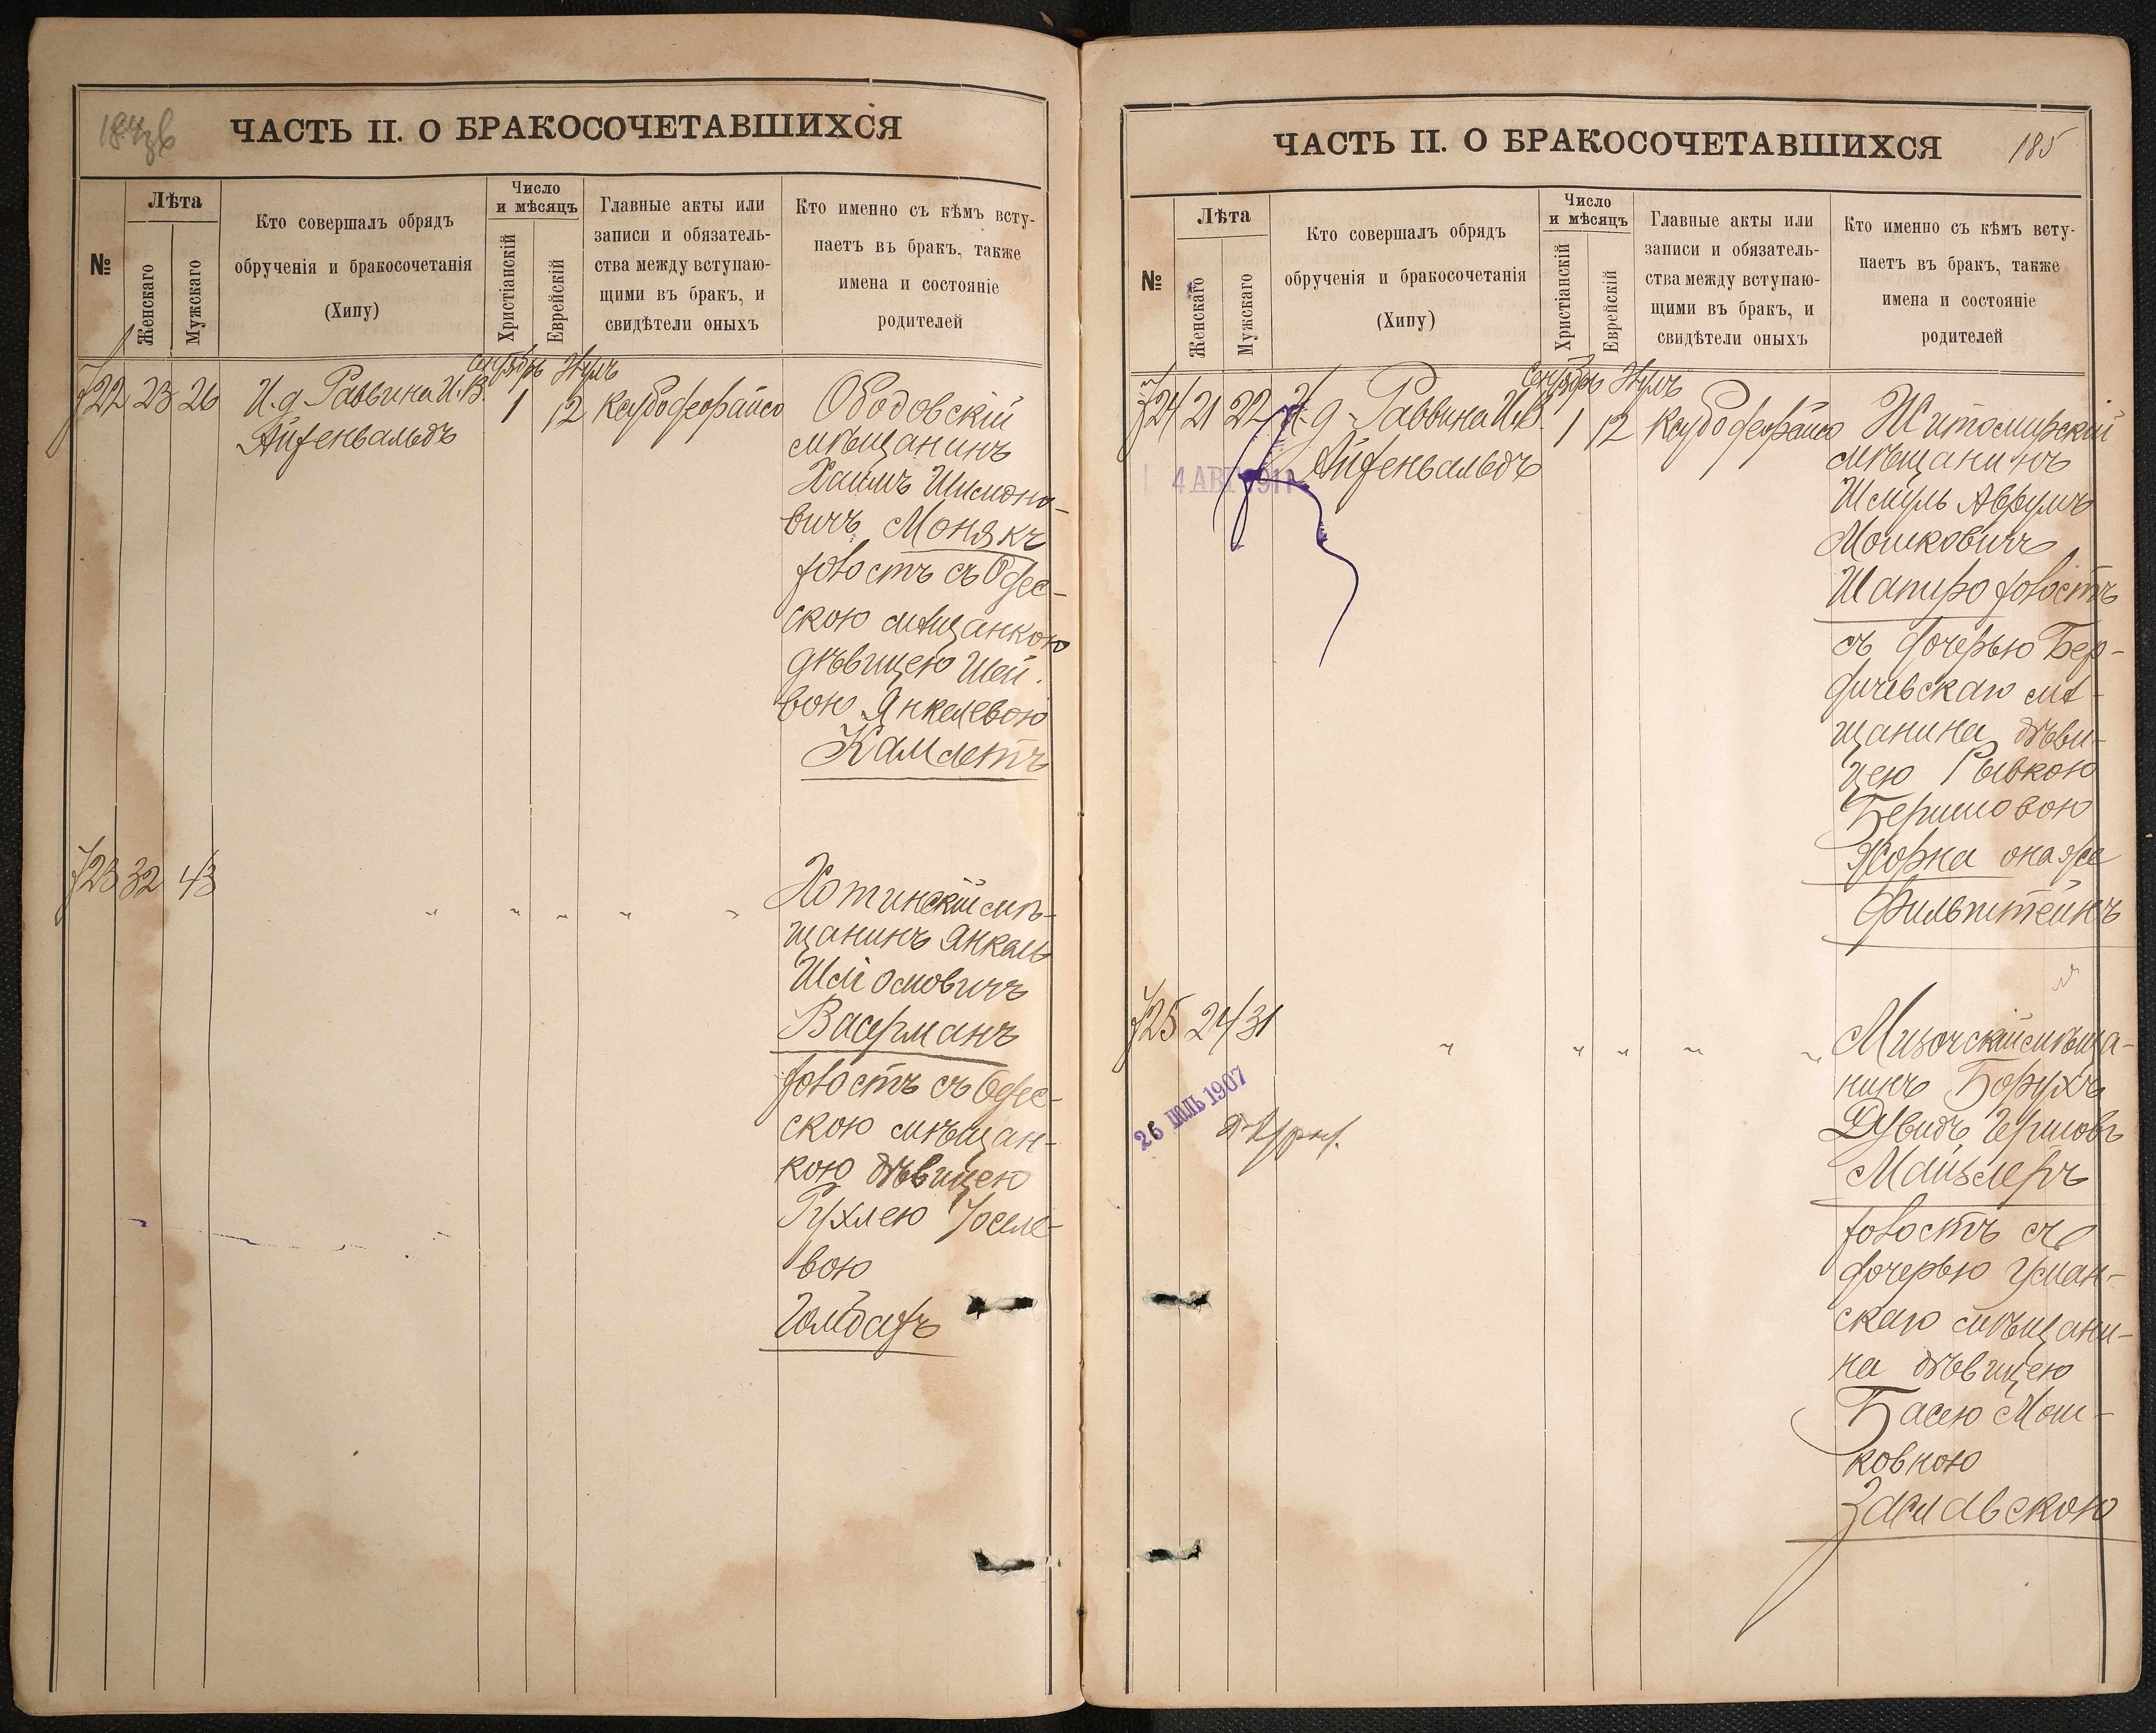 ЧАСТЬ II. О БРАКОСОЧЕТАВШИХСЯ
№
Лѣта
Женскаго
Мужскаго
Кто совершалъ обрядъ
обрученія и бракосочетанія
(Хипу)
Число
и мѣсяцъ
Христіанскій
Еврейскій
Главные акты или
записи и обязатель-
ства между вступаю-
щими въ бракъ, и
свидѣтели оныхъ
Кто именно съ кѣмъ всту-
паетъ въ бракъ, также
имена и состояніе
родителей
722 23 26
И. д. Раввина И. В.
Айзенвальдъ
Сентябрь
1
12
Ободовскій
мѣщанинъ
Хаимъ Шимоно-
вичъ Монякъ
холостъ съ Одес-
скою мѣщанкою
дѣвицею Шей-
вою Янкелевою
Камлетъ
723 32 43
" " " " "
Хотинскій мѣ-
щанинъ Янкель
Васерманъ
холостъ съ Одес-
скою мѣщан-
кою дѣвицею
Рухлею Іоселе-
вою
ЧАСТЬ II. О БРАКОСОЧЕТАВШИХСЯ
185
№
Лѣта
Женскаго
Мужскаго
Кто совершалъ обрядъ
обрученія и бракосочетанія
(Хипу)
Число
и мѣсяцъ
Христіанскій
Еврейскій
Главные акты или
записи и обязатель-
ства между вступаю-
щими въ бракъ, и
свидѣтели оныхъ
Кто именно съ кѣмъ всту-
паетъ въ бракъ, также
имена и состояніе
родителей
724 21 22
И. д. Раввина И. В.
Айзенвальдъ
Сентябрь
1
12
4 АВГ 1911
Житомирскій
мѣщанинъ
Шмуль Аврумъ
Мошковичъ
Шапиро холостъ
съ дочерью Бер-
дичевскаго мѣ-
щанина дѣви-
цею Рывкою
Бершовою
Жорна она же
Фильштейнъ
725 24 31
" " " " "
26 ІЮЛЬ 1907
Мизочскій мѣща-
нинъ Борухъ
Дувидъ Гершовъ
Майзлеръ
холостъ съ
дочерью Уман-
скаго мѣщани-
на дѣвицею
Басею Мош-
ковною
Заславскою